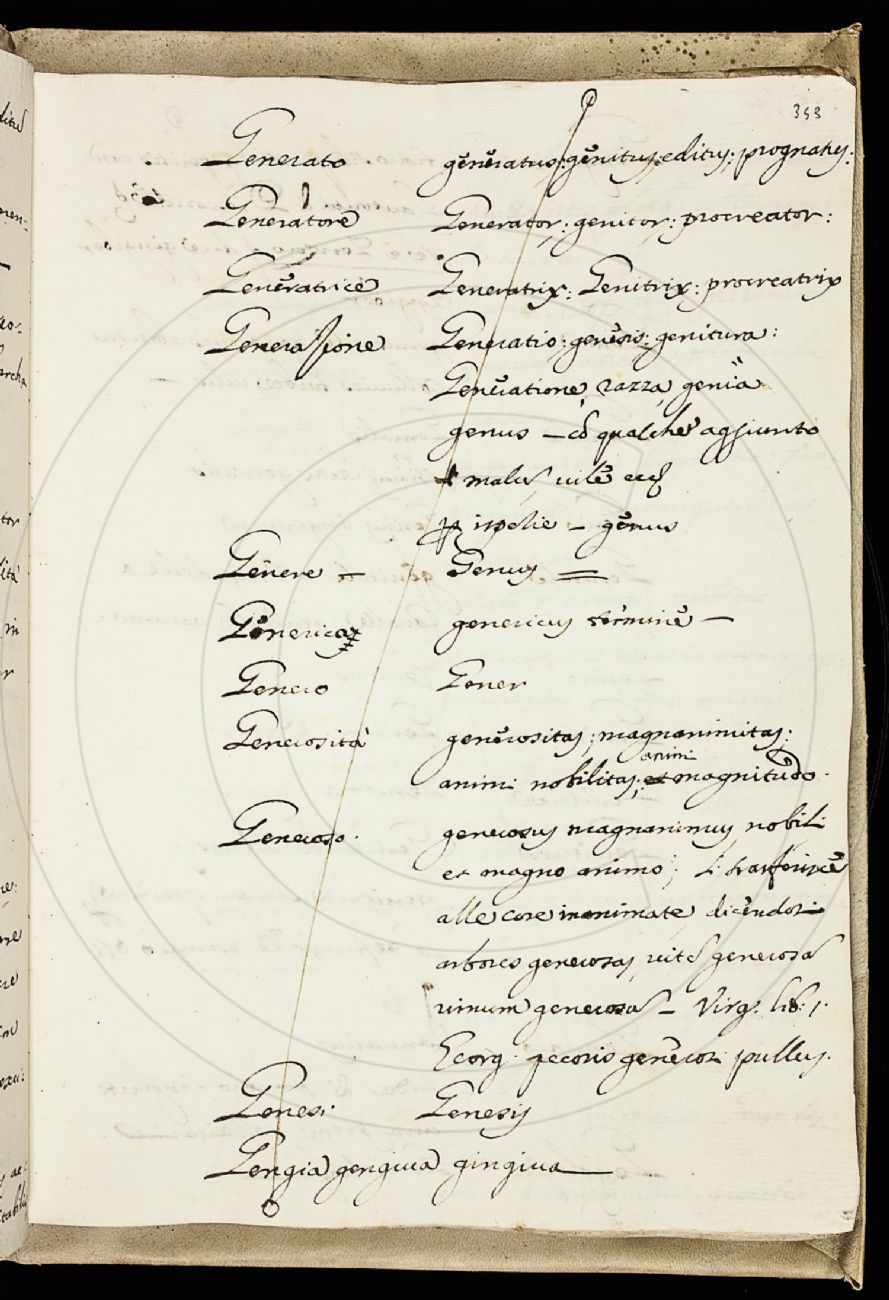 353
Generato generatus; genitus, editus; prognatus;
Generatore Generator; genitor; procreator:
Generatrice Generatrix; Genitrix; procreatrix
Generazione Generatio; genesis; genitura:
Generatione, razza, genia
genus – cō qualche aggiunto
malus, vile ecc
genus
Genere – Genus =
Generica genericus termine –
Genero Gener
Generosità generositas; magnanimitas;
animi
animi nobilitas; et magnitudo.
Generoso. generosus magnanimus nobili
et magno animo; si trasferisce
alle cose inanimate, dicendosi
arbores generosas, vites generosas
vinum generosum – Virg. lib. 1.
Georg. pecoris generosi pullus.
Genesi Genesis
Gengia gengiva gingiva